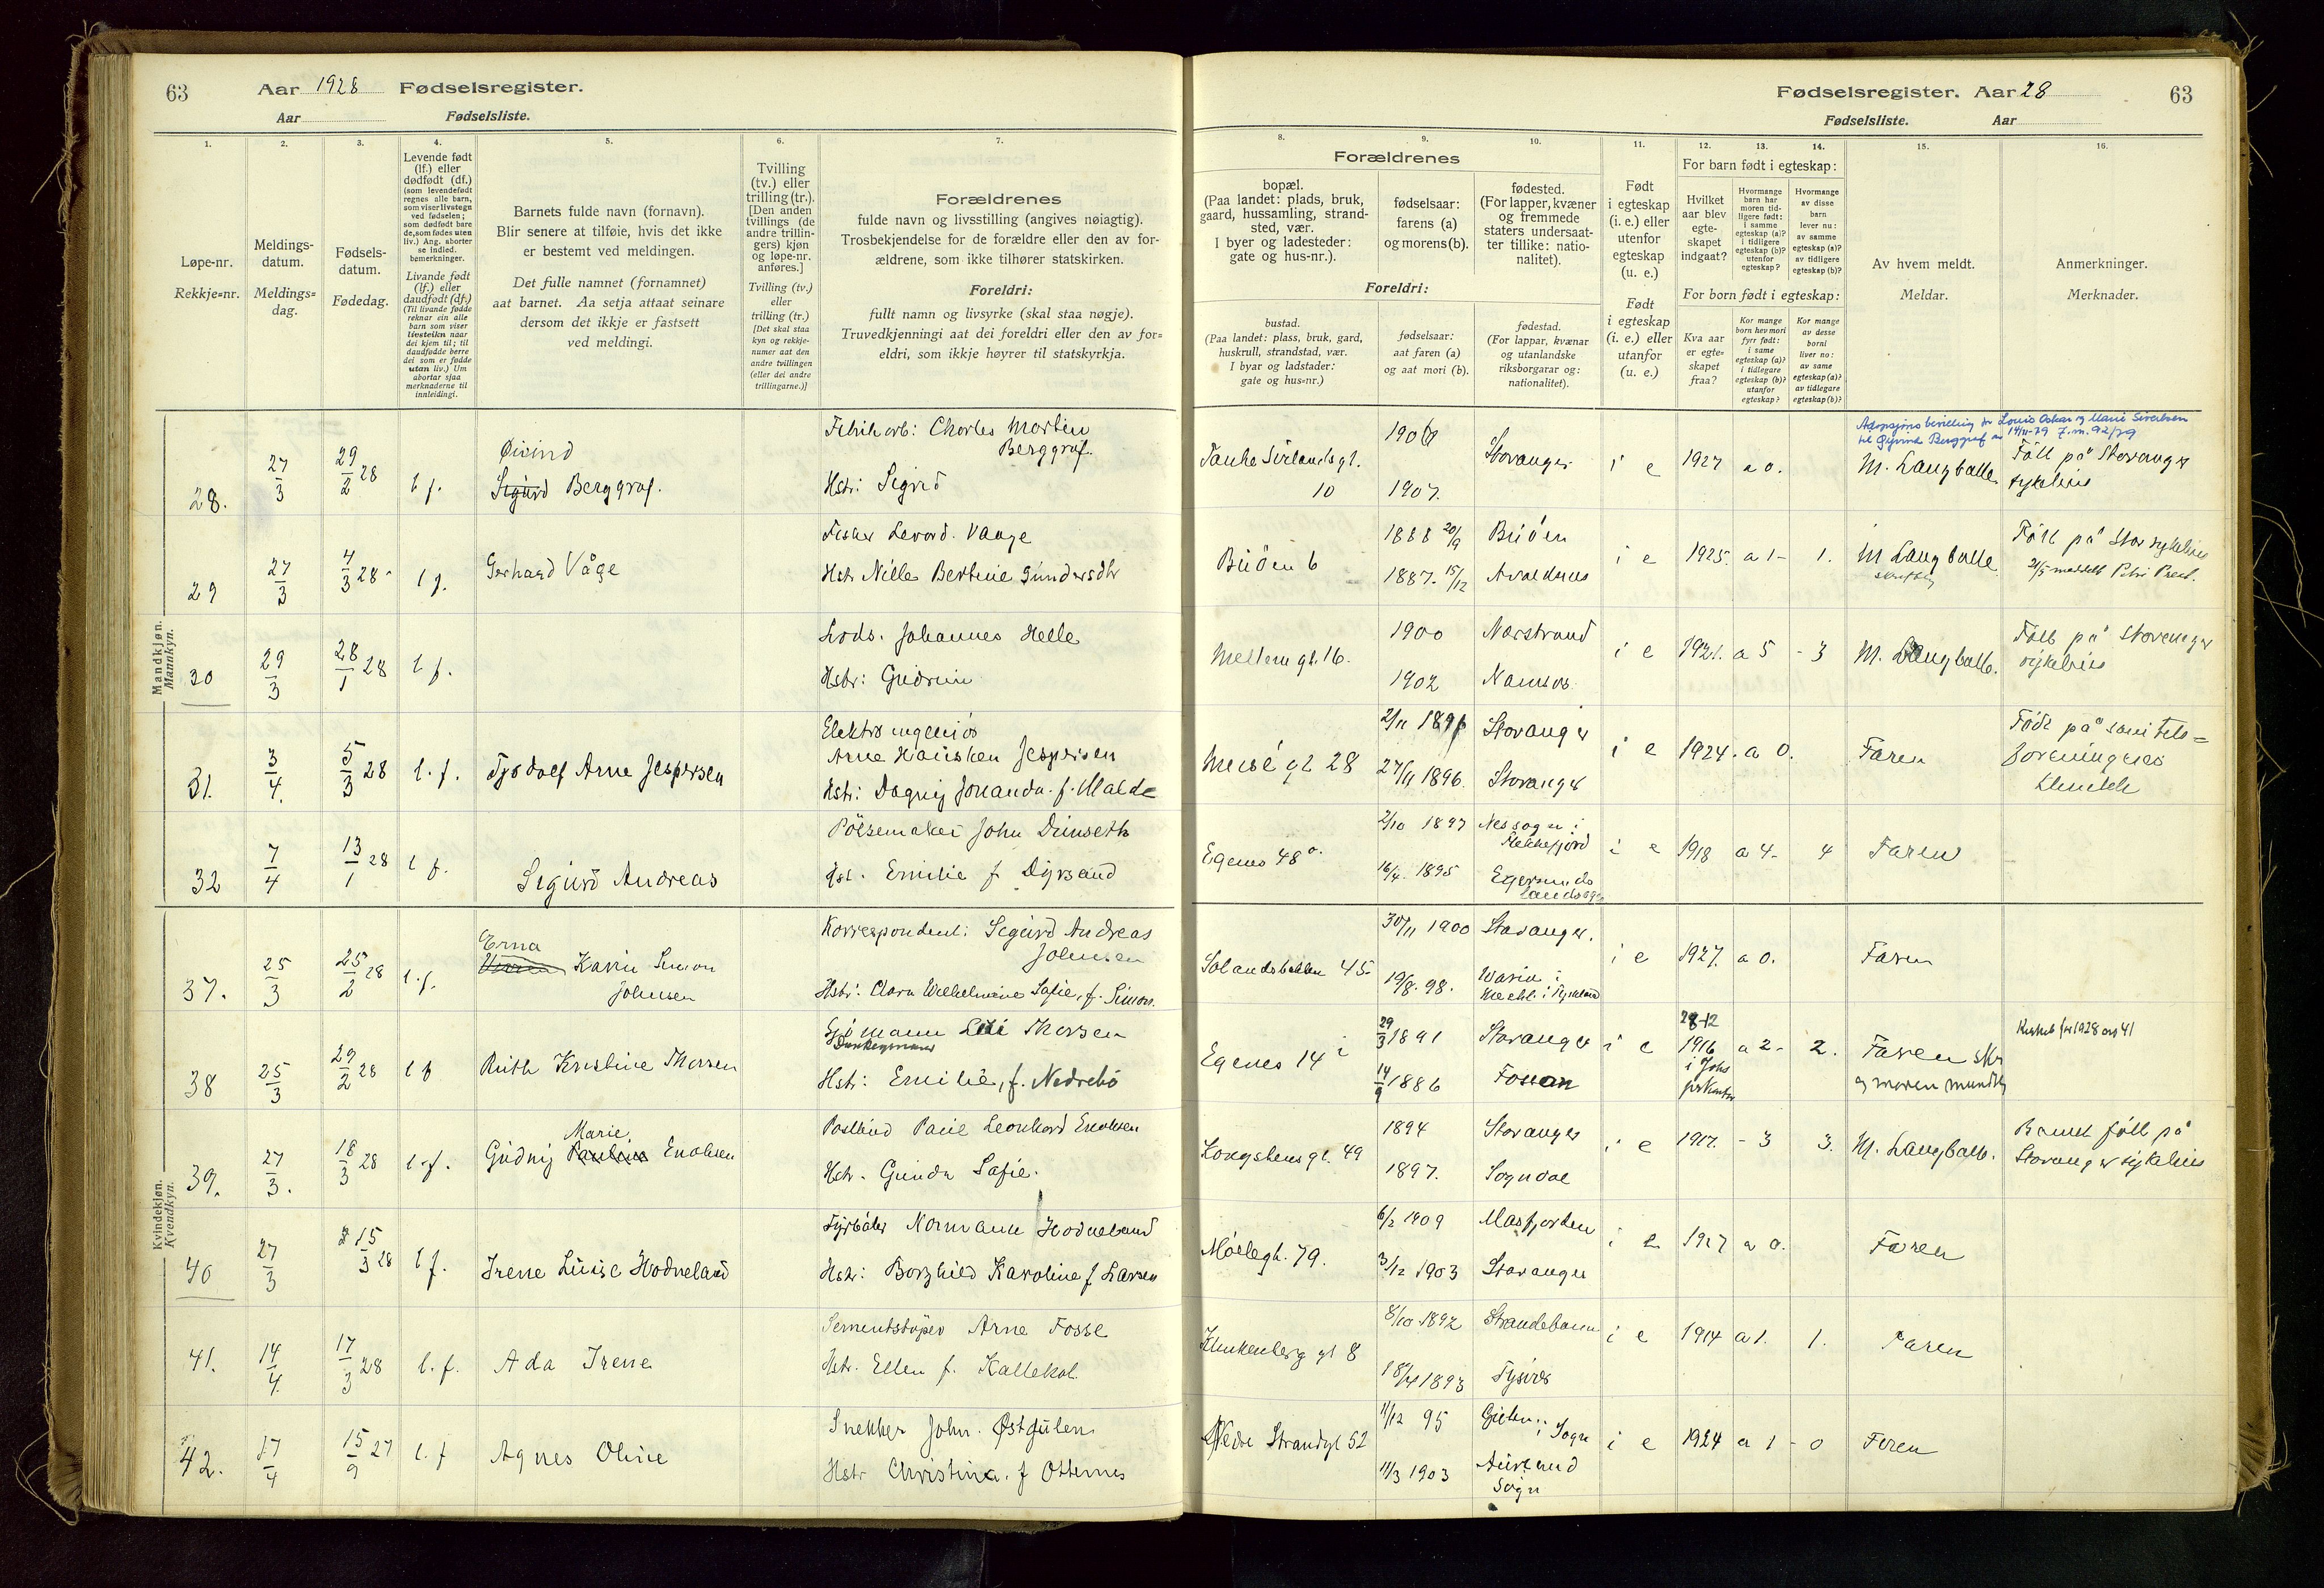 63 Aar 1928 Fødselsregister.
Aar Fødselsliste.
1. 2. 3. 4. 5. 6. 7.
Løpe-nr.
Rekkje=nr.
Meldings-
datum.
Meldings=
dag.
Fødsels-
datum.
Fødedag.
Levende født
(lf.) eller
dødfødt (df.)
(som levendefødt
regnes alle barn,
som viser livstegn
ved fødselen;
som dødfødt bare
de, som fødes uten
liv.) Ang. aborter
se indled.
bemerkninger.
Livande født
(lf.) eller
daudfødt (df.)
(Til livande fødde
reknar ein alle
barn som viser
livsteikn naar
dei kjem til; til
daudfødde berre
dei som er fødde
utan liv.) Um
abortar sjaa
merknaderne til
innleidingi.
Barnets fulde navn (fornavn).
Blir senere at tilføie, hvis det ikke
er bestemt ved meldingen.
Det fulle namnet (fornamnet)
aat barnet. Aa setja attaat seinare
dersom det ikkje er fastsett
ved meldingi.
Tvilling
(tv.) eller
trilling (tr.).
[Den anden
tvillings (de
andre trillin-
gers) kjøn
og løpe-nr.
anføres.]
Tvilling (tv.)
eller
trilling (tr.)
[Det skal staa
kyn og rekkje-
numer aat den
andre tvillingen
(eller dei andre
trillingarne.)]
Forældrenes
fulde navn og livsstilling (angives nøiagtig).
Trosbekjendelse for de forældre eller den av for-
ældrene, som ikke tilhører statskirken.
Foreldri:
fullt namn og livsyrke (skal staa nøgje).
Truvedkjenningi aat dei foreldri eller den av for=
eldri, som ikkje høyrer til statskyrkja.
Mandkjøn.
Mannkyn.
28. 27/3 29/2 28 l f. Øivind
Sigurd Berggraf.
Fabrikarb: Charles Martin
Berggraf.
Hstr: Sigrid
29 27/3 4/3 28 l f. Gerhard Våge
Fisker Levord. Vaage
Hstr Nille Bertine Gundersdtr
30 29/3 28/1 28 l f.
Lods. Johannes Helle
Hstr: Gudrun
31. 3/4. 5/3 28 l. f. Tjodolf Arne Jespersen
Elektroingeniør
Arne Hausken Jespersen
Hstr: Dagny Johanda. f. Malde
32 7/4 13/1 28 l f. Sigurd Andreas
Pølsemaker John Dunseth
Hst. Emilie f Dyrsand
Kvindekjøn.
Kvendkyn.
37. 25/3 25/2 28 l. f. Erna
Karin Simon
Johnsen
Korrespondent: Sigurd Andreas
Johnsen
Hstr: Clara Wilhelmine Sofie, f. Simon.
38 25/3 29/2 28 l f Ruth Kristine Thorsen
Sjømann Thorsen
Hstr: Emilie, f. Nedrebø
39. 27/3. 18/3 28 l. f. Marie
Gudny Pauline Enoksen
Postbud Paul Leonhard Enoksen
Hstr. Gunda Sofie.
40 27/3 15/3 28 l f. Irene Luise Hodneland
Fyrbøter Normann Hodneland
Hstr: Borghild Karoline f Larsen
41. 14/4. 17/3 28 l. f. Ada Irene
Sementstøper Arne Fosse
Hstr. Ellen f. Kallekod.
42. 17/4 15/9 27 l. f Agnes Oline
Snekker John. Østgulen
Hstr Christina. f Otternes
Fødselsregister. Aar 28 63
Fødselsliste. Aar
8. 9. 10. 11. 12. 13. 14. 15. 16.
Forældrenes
bopæl.
(Paa landet: plads, bruk,
gaard, hussamling, strand-
sted, vær.
I byer og ladesteder:
gate og hus-nr.).
fødselsaar:
farens (a)
og morens (b).
fødested.
(For lapper, kvæner
og fremmede
staters undersaat-
ter tillike: natio-
nalitet).
Foreldri:
bustad.
(Paa landet: plass, bruk, gard,
huskrull, strandstad, vær.
I byar og ladstader:
gate og hus=nr.)
fødselsaar:
aat faren (a)
og aat mori (b).
fødestad.
(For lappar, kvænar
og utanlandske
riksborgarar og:
nationalitet).
Født
i egteskap
(i. e.) eller
utenfor
egteskap
(u. e.)
Født
i egteskap
(i. e.) eller
utanfor
(u. e.)
For barn født i egteskap:
Hvilket
aar blev
egte-
skapet
indgaat?
Hvormange
barn har
moren tid-
ligere født:
i samme
egteskap (a)?
i tidligere
egteskap (b)?
utenfor
egteskap?
Hvormange
av disse
barn
lever nu:
av samme
egteskap (a)?
av tidligere
egteskap (b)?
For born født i egteskap:
Kva aar
er egte=
skapet
fraa?
Kor mange
born hev mori
fyrr født:
i same
egteskap (a)?
i tidlegare
egteskap (b)?
utanfor
egteskap?
Kor mange
av desse
borni
liver no:
av same
egteskap (a)?
av tidlegare
egteskap (b)?
Av hvem meldt.
Meldar.
Anmerkninger.
Merknader.
Adopsjonsbevilling for Louis Oskar og Marie Sivertsen
til Øyvind Berggraf av 14/11-29 J. nr. 92/29
Tanke Svilandsgt.
10
1906
1907.
Stavanger
i e 1927 a 0. M. Langballe
Født på Stavanger
sykehus
Buøen 6
1888 20/9
1887. 15/12
Buøen
Avaldsnes
i e 1925. a 1 - 1. M Langballe
skriftlig
Født på Stav sykehus
21/5 meddelt Petri Prest.
Mellemgt. 16.
1900
1902
Nærstrand
Namsos
i e 1921. a 5 - 3 M. Langballe.
Født på Stavanger
sykehus
Musé gt 28
2/11 189
27/11 1896.
Stavanger
Stavanger
i e 1924. a 0. Faren
Født på sanitets=
foreningens
klinikk
Egenes 48 a.
2/10 1897
16/4. 1895
Nes sogn i
Flekkefjord
Egersunds
landsogn
i e 1918 a 4 - 4 Faren
Solandsbakken 45
30/11 1900
19/8. 98.
Stavanger.
Warin i
Meckl. i Tyskland
i e 1927. a 0. Faren
Egenes 14 i
29/3 1891
14/9 1886
Stavanger
Fossan
i e 28-12
1916
a 2 - 2. Faren skr
og moren mundtlig
Kongsteinsgt. 49
1894
1897.
Stavanger
Sogndal
i e 1917. - 3 3. M. Langballe.
Barnet født på
Stavanger sykehus
Møllegt. 79.
6/2 1909
3/12 1903
Masfjorden
Stavanger
i e 1927 a 0. Faren
Klinkenberg gt 8
8/10 1892
18/4 1893
Strandebarm
Tysvær
i e 1914 a 1. 1. Faren
Nedre Strandgt 52
11/12 95
11/3 1903
Gulen i Sogn
Aurland
Sogn
i e 1924 a 1 - 0 Faren